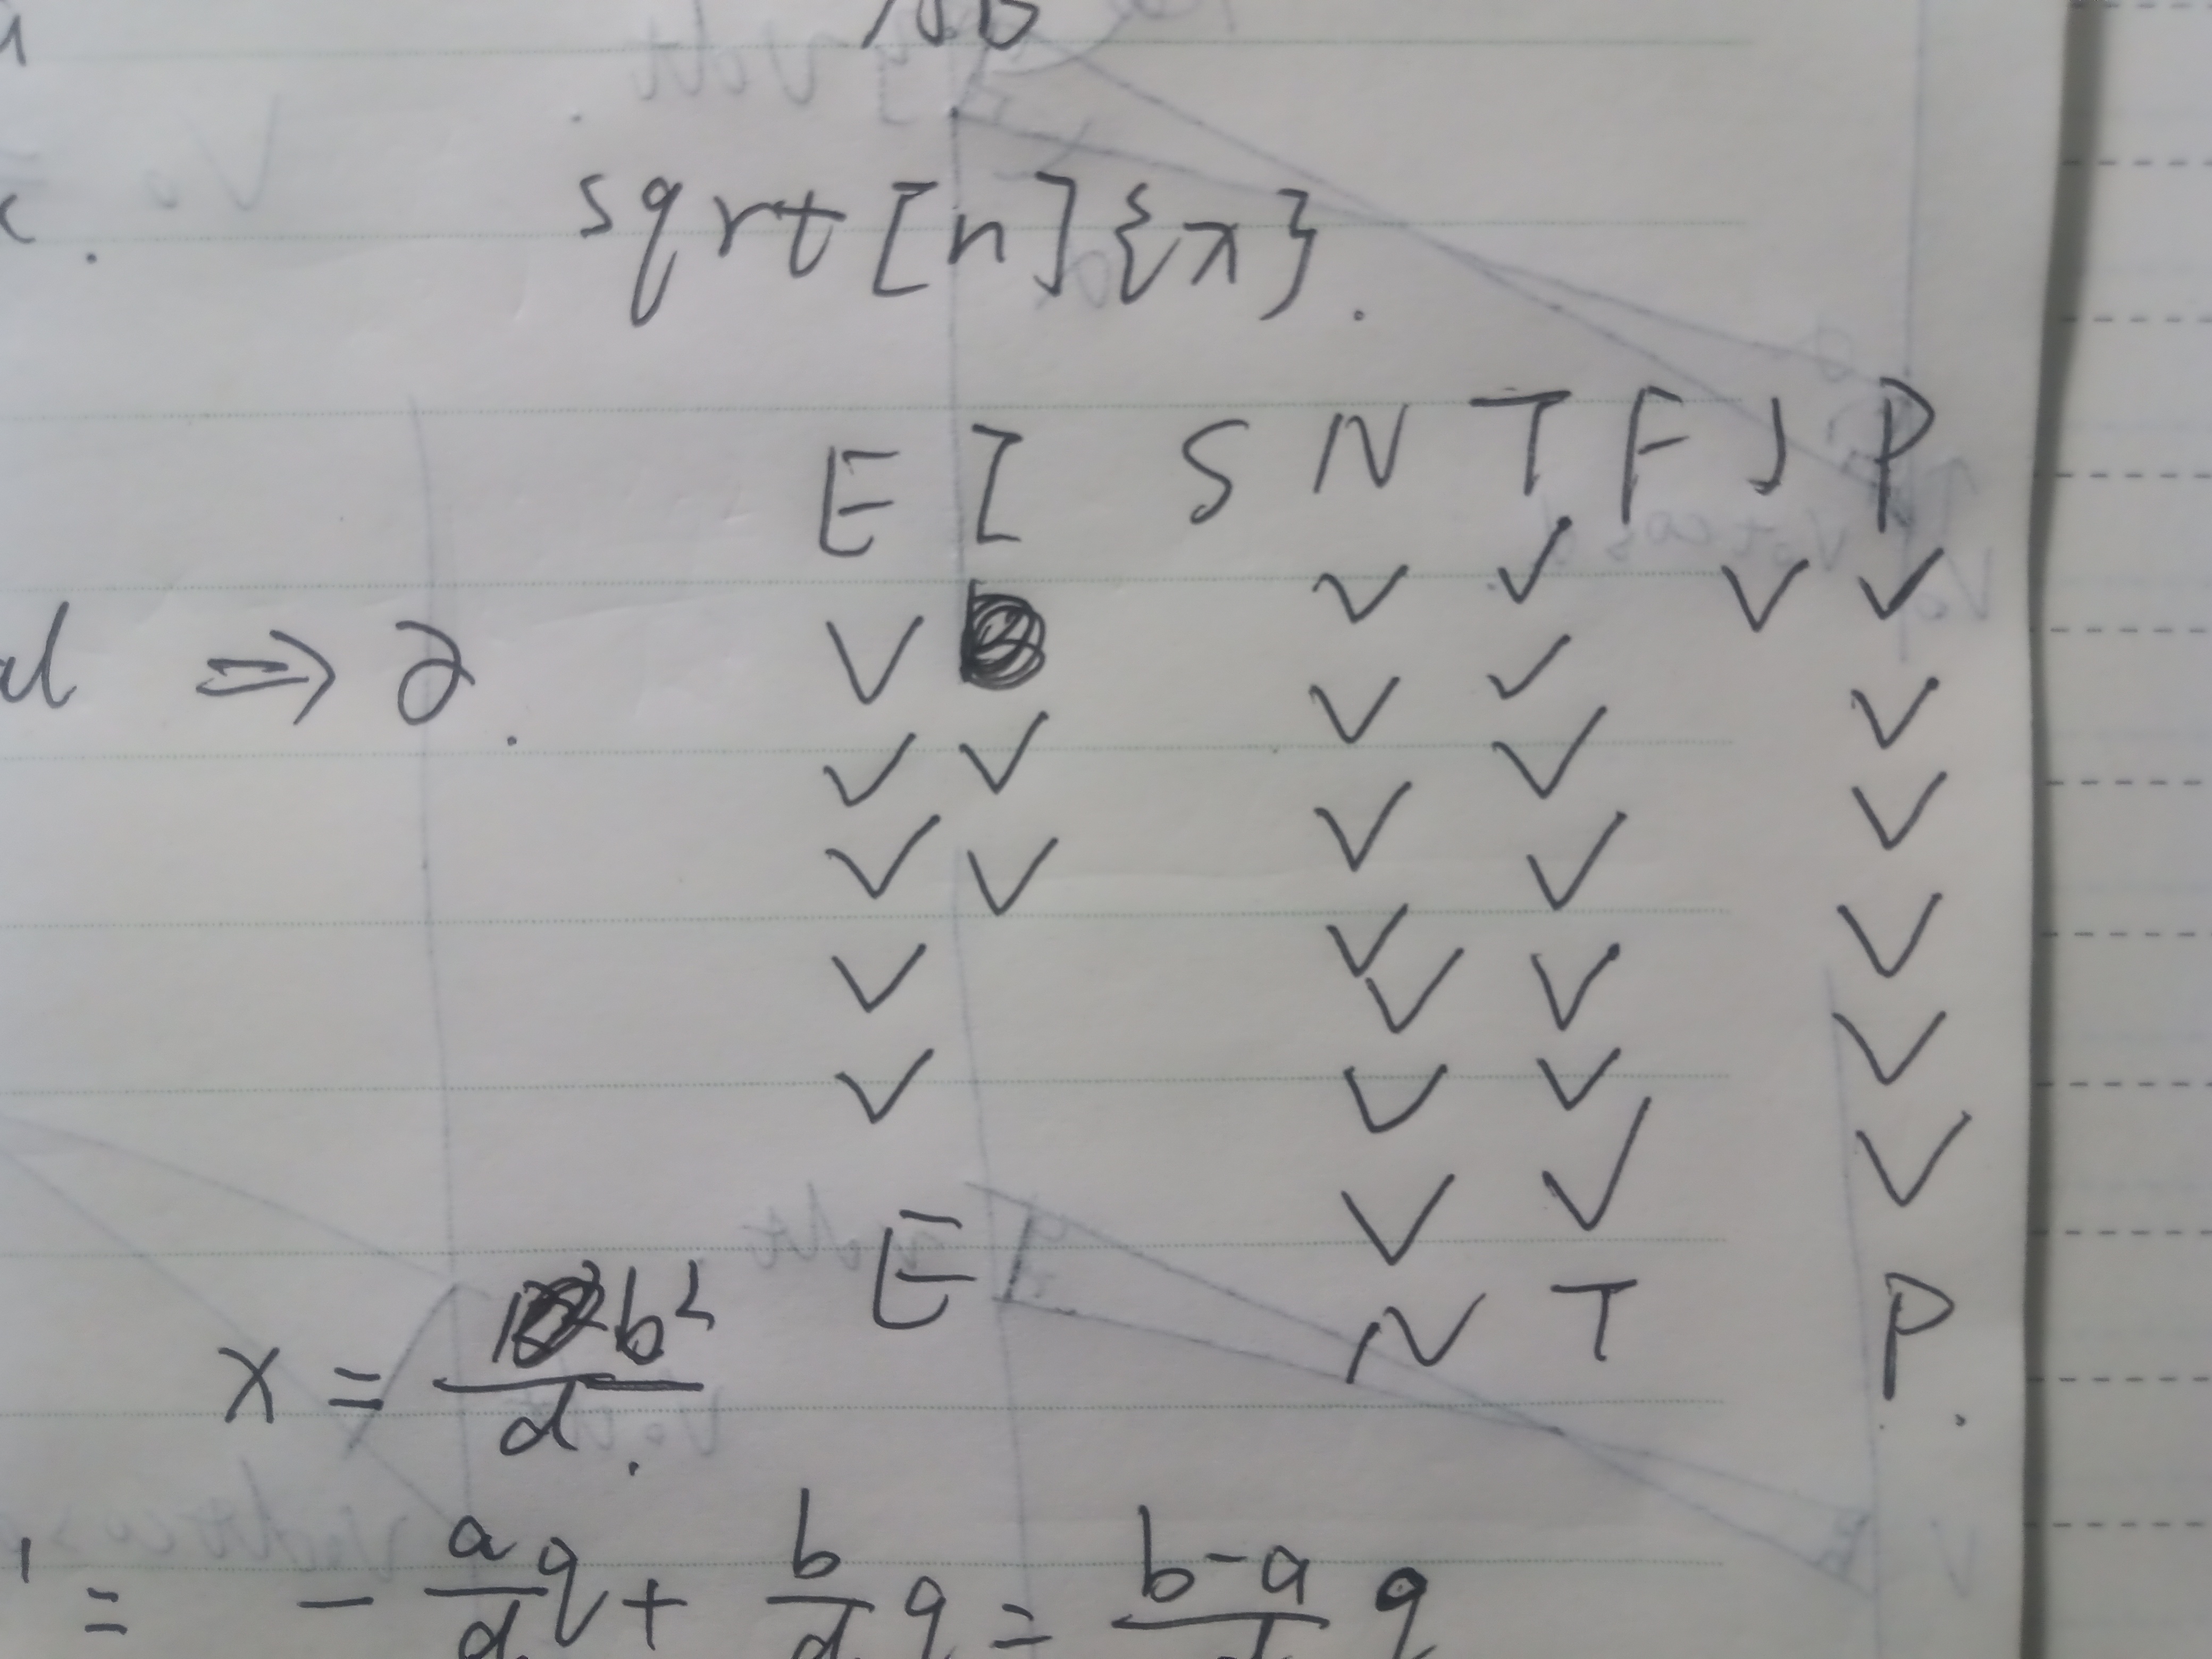 sqrt[n]{x}.
E I S N T F J P
✓ ✓ ✓ ✓ ✓
✓ ✓ ✓
✓ ✓ ✓ ✓ ✓
✓ ✓ ✓ ✓ ✓
✓ ✓ ✓ ✓
✓ ✓ ✓ ✓
✓ ✓ ✓
⇒ ∂.
E N T P.
x = b²/d.
' = - a/d q + b/d q = b-a/d q